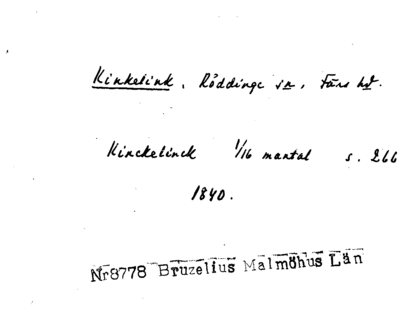 Kinkelink, Röddinge sn, Färs hd.
Kinckelinck 1/16 mantal s. 266
1840.
Nr8778 Bruzelius Malmöhus Län